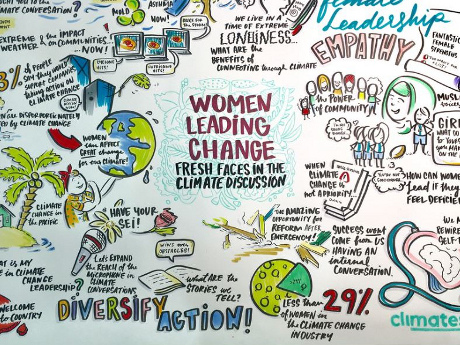 CLIMATE CHANGE
DISCUSSION?
THE
MOLD
BACK FOR THE
EXTREME & THE IMPACT
WEATHER ON COMMUNITIES
NOW!
WE LIVE IN A
TIME OF EXTREME
LONELINESS...
WHAT ARE THE
BENEFITS OF
CONNECTING through CLIMATE
female
Leadership
EMPATHY
FANTASTIC
FEMALE
3% OF PEOPLE
SAY THEY WOULD
SUPPORT
TAKING ACTION ON
CLIMATE CHANGE
ARE DISPROPORTIONATELY
BY CLIMATE CHANGE
WOMEN
CAN AFFECT
GREAT CHANGE
for our climate!
WOMEN
LEADING
CHANGE
FRESH FACES IN THE
CLIMATE DISCUSSION
the POWER
of COMMUNITY
MUSLIM
GIRL
WHEN
CLIMATE
CHANGE is
not A PRIORITY
HOW CAN WOMEN
LEAD if THEY
FEEL DEFICIENT
CLIMATE
CHANGE in
THE PACIFIC
HAVE YOUR
SEI!
Let's EXPAND
the REACH of the
MICROPHONE in
CLIMATE
CONVERSATIONS
WINS over
OBSTACLES!
the AMAZING
OPPORTUNITY for
REFORM AFTER
EMERGENCY!
SUCCESS won't
COME from US
HAVING AN
internal
CONVERSATION.
REWIRE
SELF-T
WHAT IS MY
in CLIMATE
CHANGE
LEADERSHIP?
WELCOME
to COUNTRY
DIVERSIFY
ACTION!
what ARE the
STORIES WE
TELL?
LESS than 29%
of WOMEN in
the CLIMATE CHANGE
INDUSTRY
climates